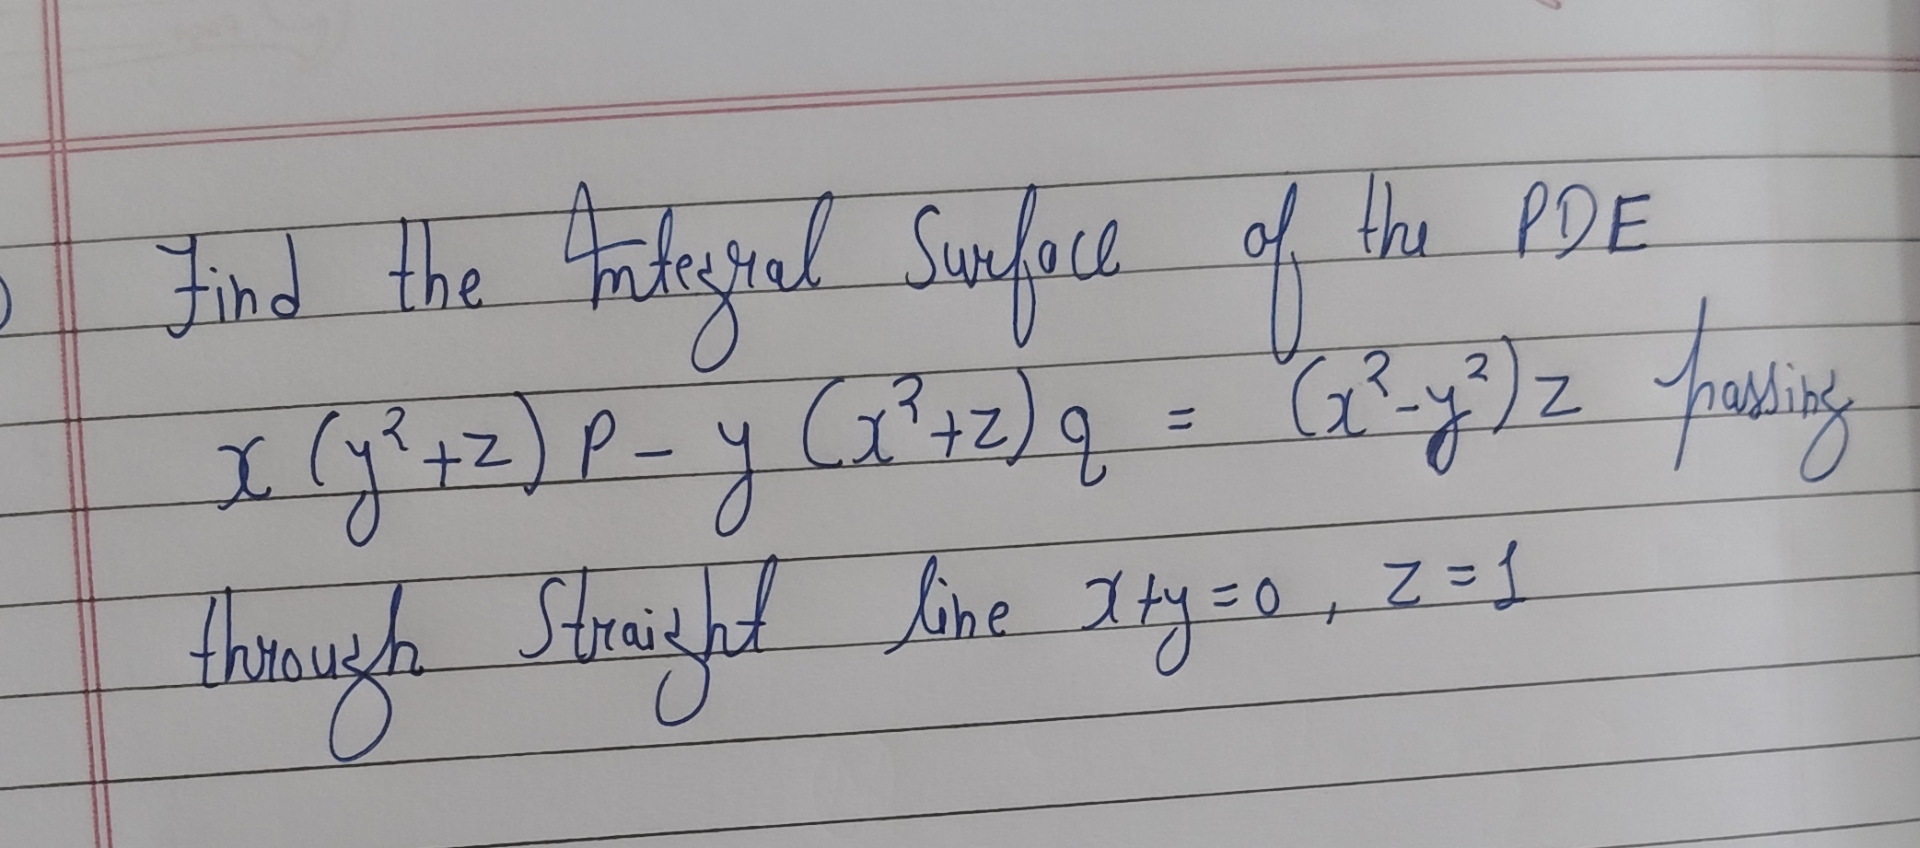 ) Find the Integral Surface of the PDE
x (y²+z) p - y (x²+z) q = (x²-y²) z passing
through Straight line x+y=0, z=1